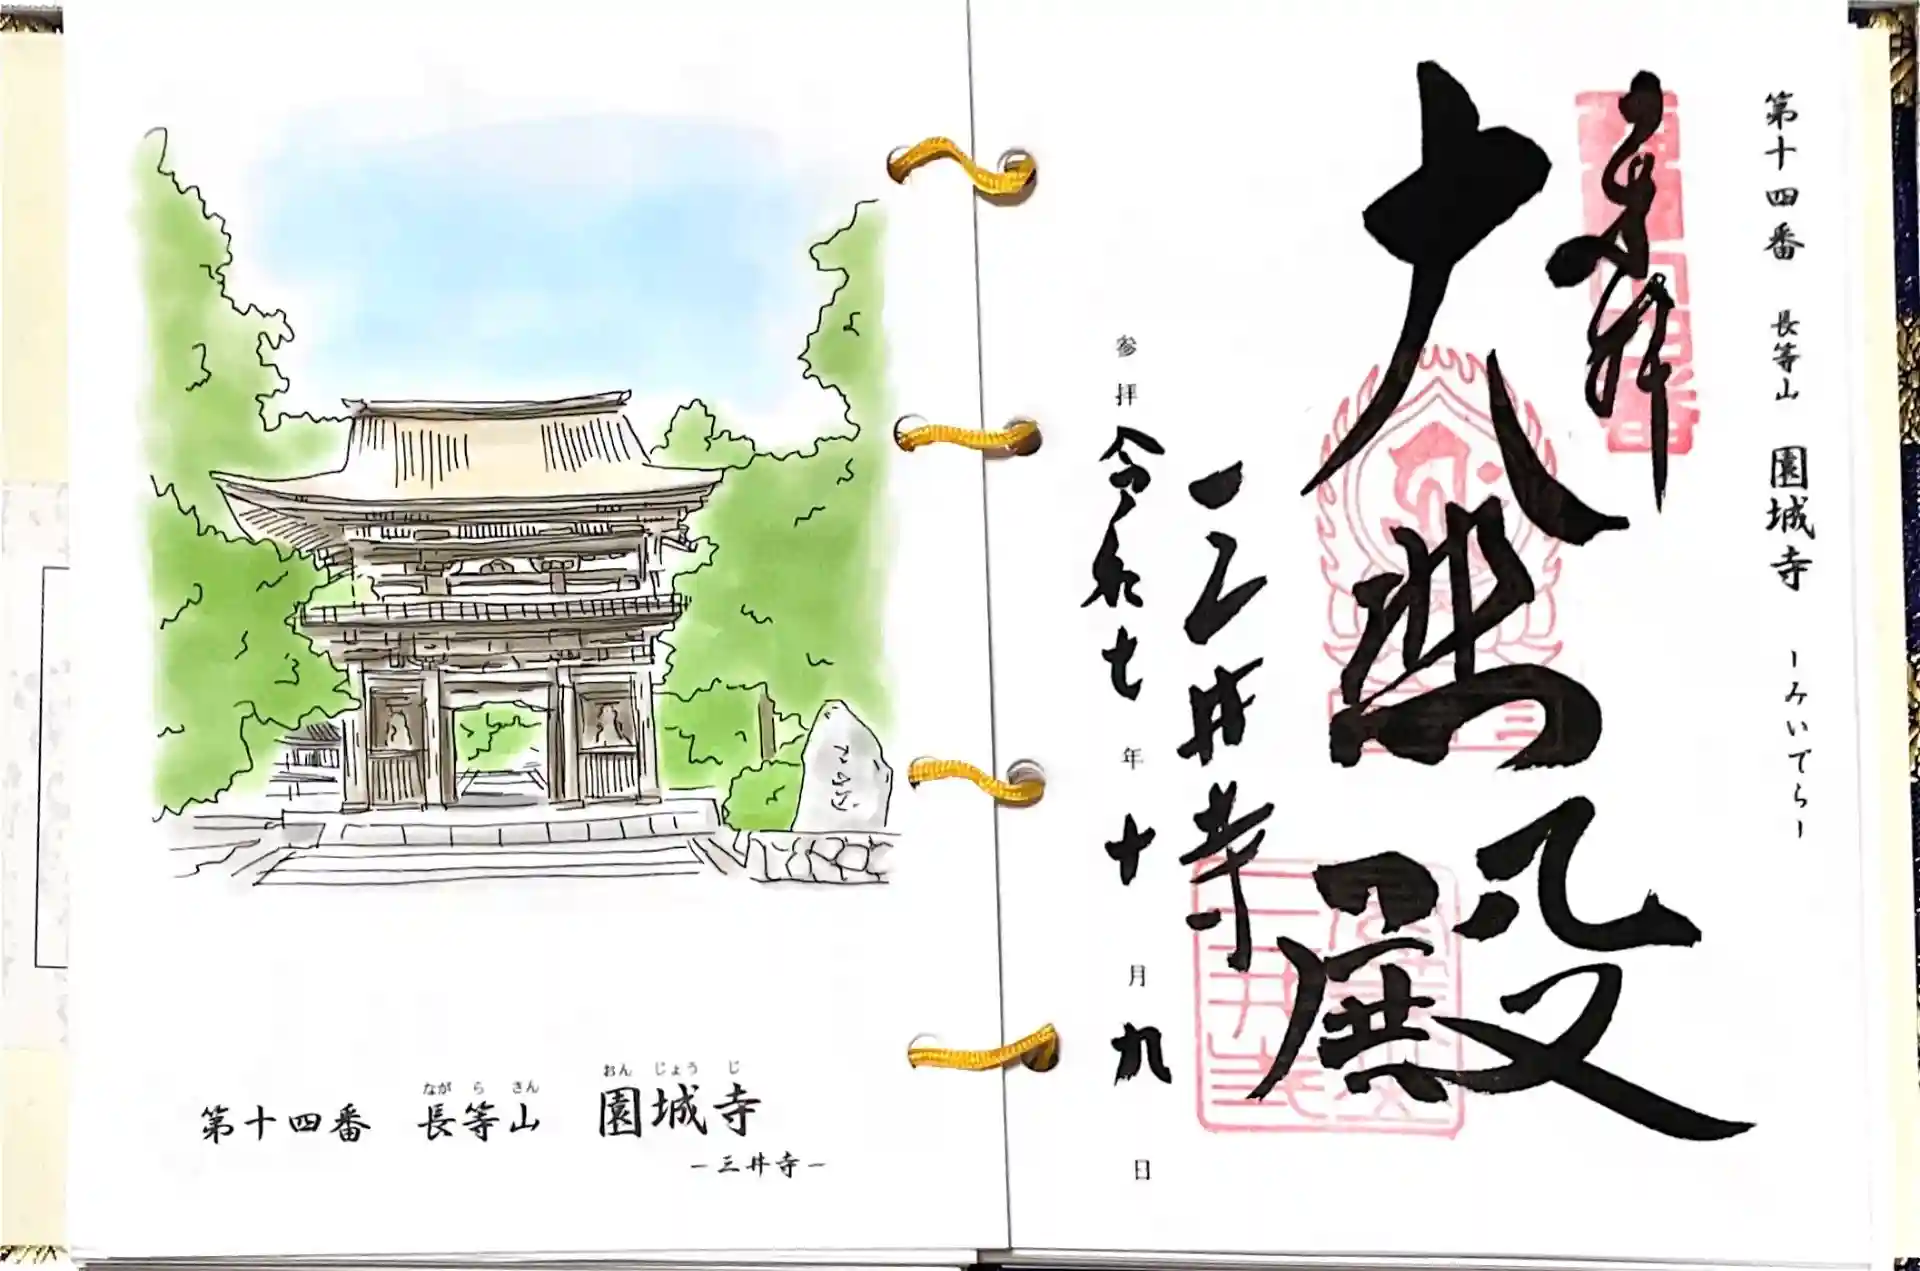 第十四番 長等山 園城寺 ーみいでらー
奉拝
大悲殿
三井寺
参拝 令和七年 十月 九日
ながらさん おんじょうじ
第十四番 長等山 園城寺
ー三井寺ー